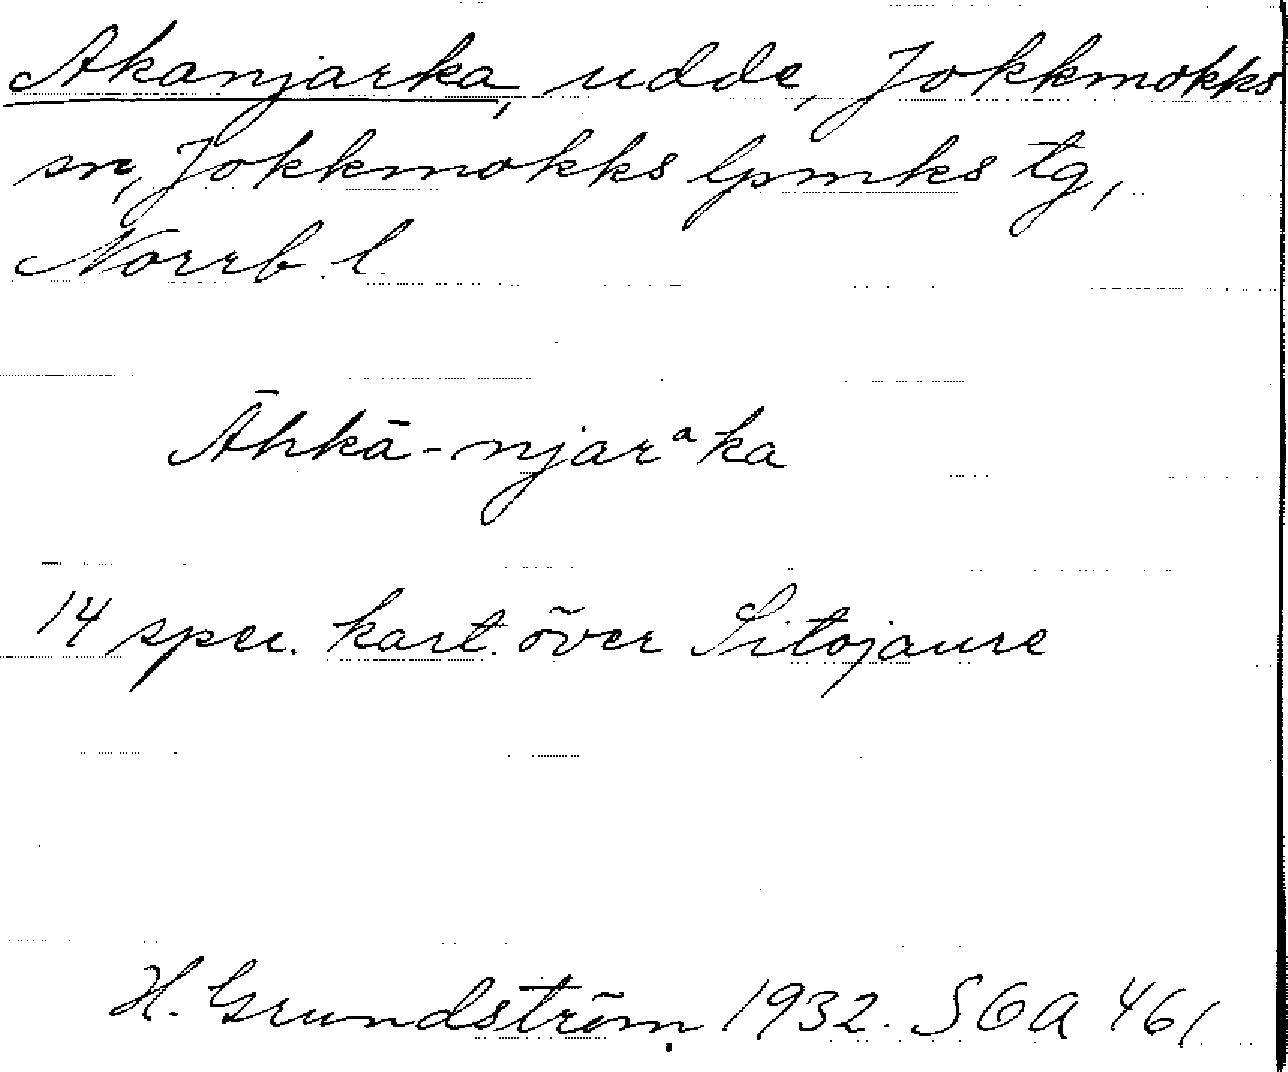 Akanjarka, udde, Jokkmokks
sn, Jokkmokks lpmks tg,
Norrb. l.
Āhkā-njarᵃka
14 spec. kart. över Sitojaure
H. Grundström 1932. SOA 461